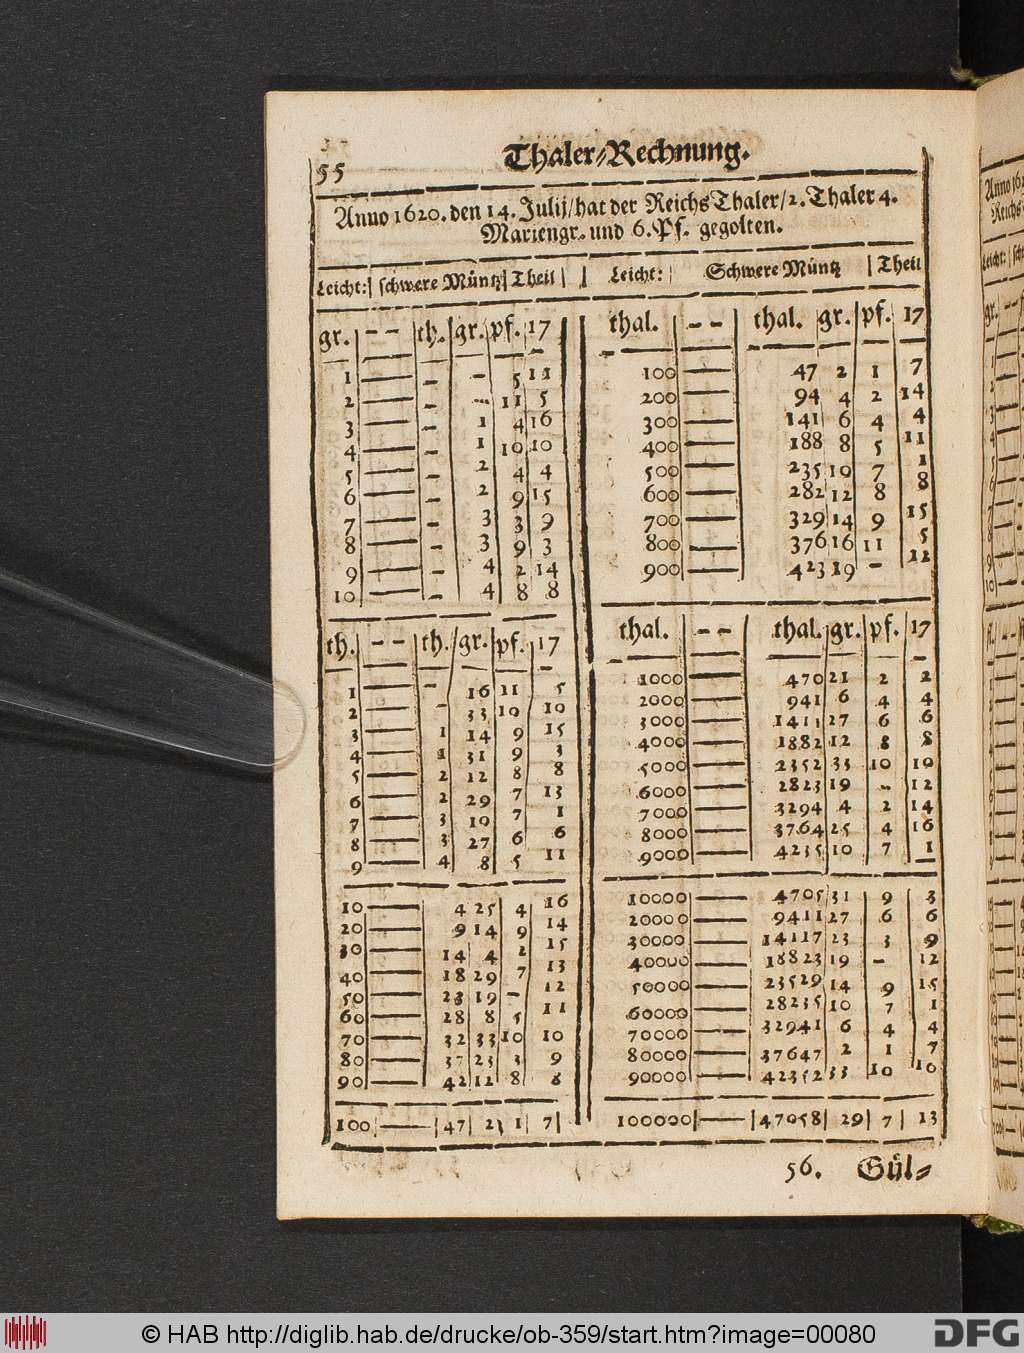 55
Thaler-Rechnung.
Anno 1620. den 14. Julij/hat der Reichs Thaler/2. Thaler 4.
Mariengr. und 6. Pf. gegolten.
Leicht: | schwere Müntz | Theil | | Leicht: | Schwere Müntz | Theil
gr. -- th. gr. pf. 17
1 — - - 5 11
2 — - - 11 5
3 — - 1 4 16
4 — - 1 10 10
5 — - 2 4 4
6 — - 2 9 15
7 — - 3 3 9
8 — - 3 9 3
9 — - 4 2 14
10 — - 4 8 8
th. -- th. gr. pf. 17
1 — - 16 11 5
2 — - 33 10 10
3 — 1 14 9 15
4 — 1 31 9 3
5 — 2 12 8 8
6 — 2 29 7 13
7 — 3 10 7 1
8 — 3 27 6 6
9 — 4 8 5 11
10 — 4 25 4 16
20 — 9 14 9 14
30 — 14 4 2 15
40 — 18 29 7 13
50 — 23 19 - 12
60 — 28 8 5 11
70 — 32 33 10 10
80 — 37 23 3 9
90 — 42 12 8 8
100 — 47 2 1 7
thal. -- thal. gr. pf. 17
100 — 47 2 1 7
200 — 94 4 2 14
300 — 141 6 4 4
400 — 188 8 5 11
500 — 235 10 7 1
600 — 282 12 8 8
700 — 329 14 9 15
800 — 376 16 11 5
900 — 423 19 - 12
thal. -- thal. gr. pf. 17
1000 — 470 21 2 2
2000 — 941 6 4 4
3000 — 1411 27 6 6
4000 — 1882 12 8 8
5000 — 2352 33 10 10
6000 — 2823 19 - 12
7000 — 3294 4 2 14
8000 — 3764 25 4 16
9000 — 4235 10 7 1
10000 — 4705 31 9 3
20000 — 9411 27 6 6
30000 — 14117 23 3 9
40000 — 18823 19 - 12
50000 — 23529 14 9 15
60000 — 28235 10 7 1
70000 — 32941 6 4 4
80000 — 37647 2 1 7
90000 — 42352 33 10 10
100000 — 47058 29 7 13
56. Gül-
Anno 16
Reichs
Leicht:
gr.
© HAB http://diglib.hab.de/drucke/ob-359/start.htm?image=00080
DFG